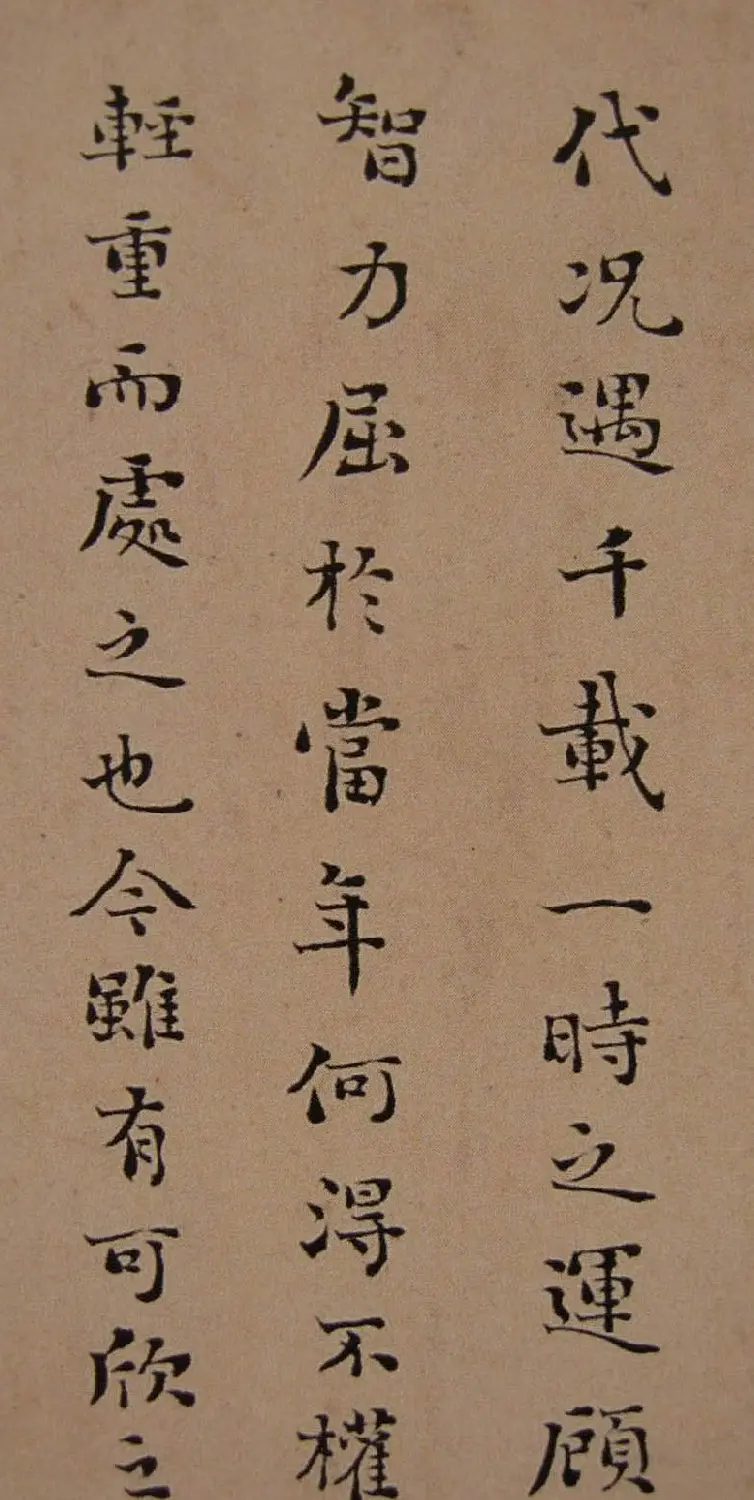 代况遇千載一時之運顧
智力屈於當年何得不權
輕重而處之也今雖有可欣之